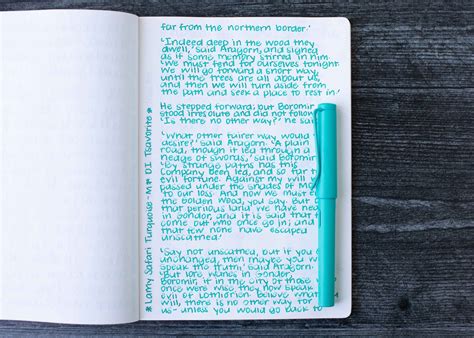 far from the northern border.'
'Indeed deep in the wood they
dwell,' said Aragorn, and sighed
as if some memory stirred in him.
'We must fend for ourselves tonight.
We will go forward a short way,
until the trees are all about us,
and then we will turn aside from
the path and seek a place to rest in.'
He stepped forward; but Boromir
stood irresolute and did not follow.
'Is there no other way?' he said
'What other fairer way would
desire?' said Aragorn. 'A plain
road, though it led through a
hedge of swords,' said Boromir
'By strange paths has this
Company been led, and so far t
evil fortune. Against my will w
passed under the shades of Mo
to our loss. And now we must e
the Golden Wood, you say. But
that perilous land we have hea
in Gondor, and it is said that f
come out who once go in; and
that few none have escaped
unscathed.'
'Say not unscathed, but if you
unchanged, then maybe you w
speak the truth,' said Aragorn.
'But lore wanes in Gondor,
Boromir, if in the city of those
once were wise they now speak
evil of Lothlórien. Believe what
will, there is no other way for
us- unless you would go back to
*Lamy Safari Turquoise - M * D.I. Tsavorite*